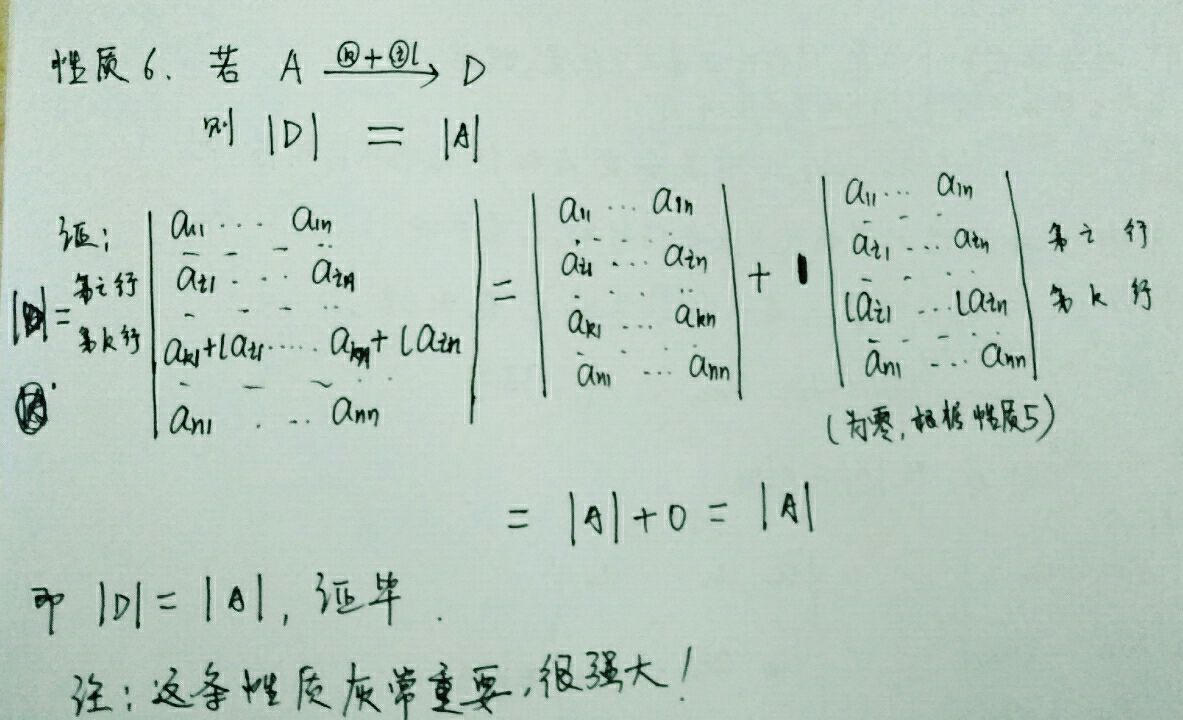 性质6. 若 A —(ⓚ+ⓘl)→ D
则 |D| = |A|
证:
|D| = 第i行 第k行 | a11 ··· a1n ; ai1 ··· ain ; ak1+lai1 ····· akn+lain ; an1 ··· ann | = | a11 ··· a1n ; ai1 ··· ain ; ak1 ··· akn ; an1 ··· ann | + | a11 ··· a1n ; ai1 ··· ain ; lai1 ··· lain ; an1 ··· ann | 第i行 第k行
(为零,根据性质5)
= |A|+0 = |A|
即 |D| = |A|, 证毕.
注:这条性质灰常重要,很强大!